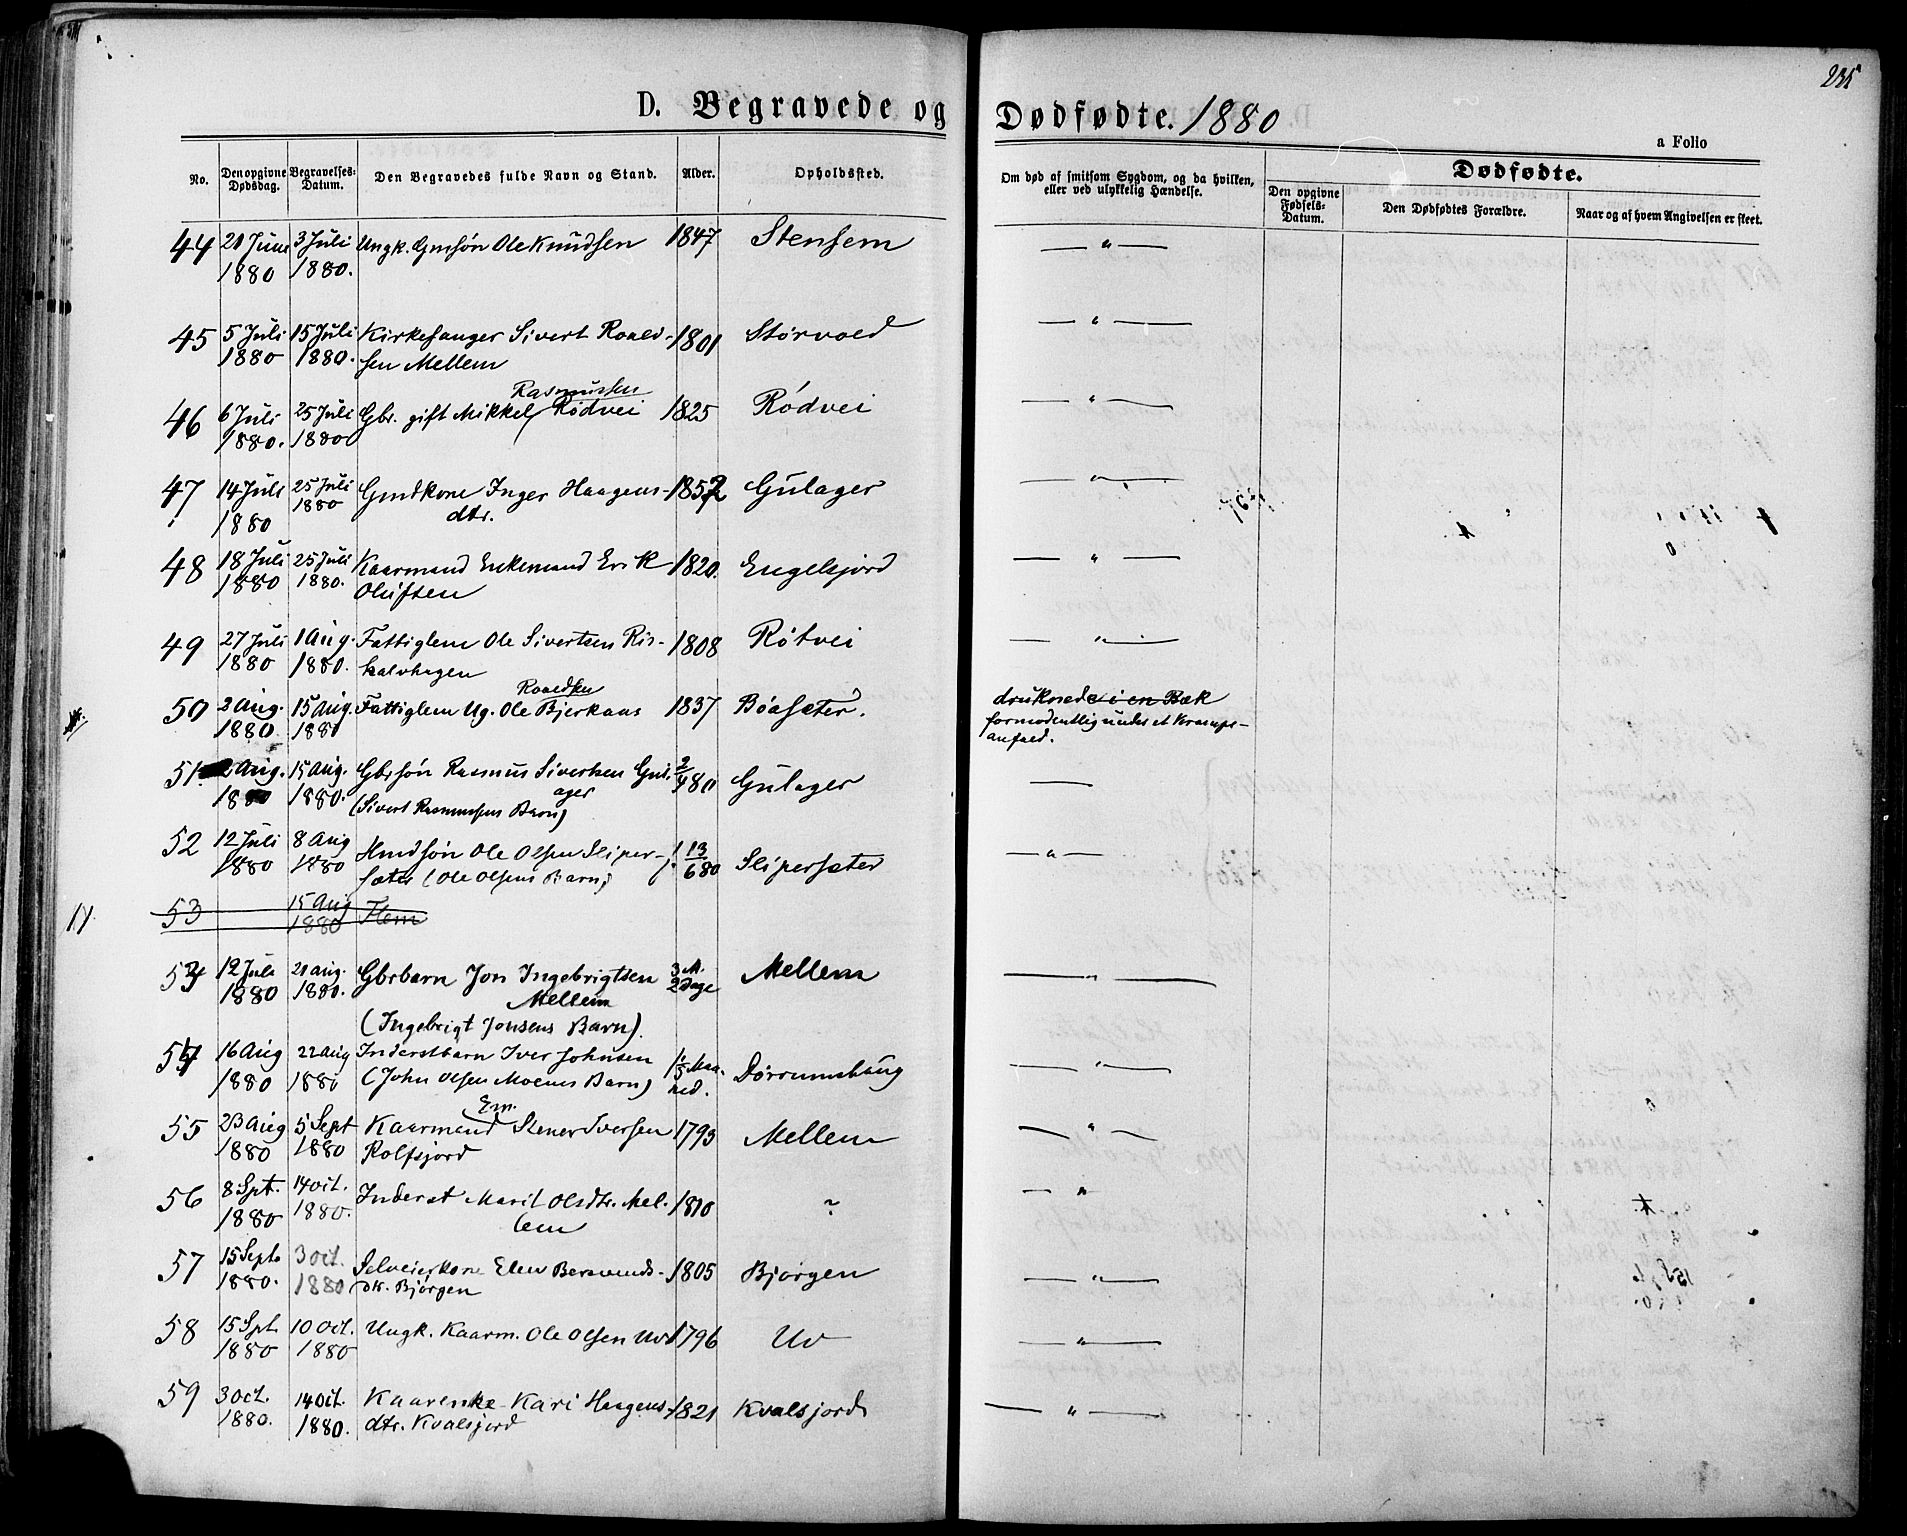 235
D. Begravede og Dødfødte. 1880
a Folio
No.
Den opgivne Dødsdag.
Begravelses-Datum.
Den Begravedes fulde Navn og Stand.
Alder.
Opholdssted.
Om død af smitsom Sygdom, og da hvilken, eller ved ulykkelig Hændelse.
Dødfødte.
Den opgivne Fødsels-Datum.
Den Dødfødtes Forældre.
Naar og af hvem Angivelsen er skeet.
44 21 Juni 3 Juli Ungk. Gmsøn Ole Knudsen 1847 Stensem — " —
1880 1880.
45 5 Juli 15 Juli Kirkesanger Sivert Roald- 1801 Størvold — " —
1880 1880. sen Mellem
Rasmussen
46 6 Juli 25 Juli Gbr. gift Mikkel Rødvei 1825 Rødvei — " —
1880. 1880
47 14 Juli 25 Juli Gmdkone Inger Haagens- 1852 Gulager — " —
1880 1880 dtr.
48 18 Juli 25 Juli Kaarmand Enkemand Erik 1820. Engelsjord — " —
1880 1880. Olufsen
49 27 Juli 1 Aug. Fattiglem Ole Sivertsen Ris- 1808 Røtvei — " —
1880 1880. kalvhagen
Roaldsen
50 2 Aug. 15 Aug. Fattiglem Ug. Ole Bjerkaas 1837 Bøasæter. druknede i en Bæk
1880. 1880 formodentlig under et Krampe-
anfald.
51 2 Aug. 15 Aug. Gbrsøn Rasmus Sivertsen Gul- 2/4 80 Gulager —
1880 1880. ager
(Sivert Rasmussens Barn)
52 12 Juli 8 Aug Hmdsøn Ole Olsen Sliper- 13/6 80 Slipersæter — " —
1880 1880 sæter (Ole Olsens Barn)
53 15 Aug Flem
1880
53 12 Juli 21 Aug. Gbrbarn Jon Ingebrigtsen 3 M. Mellem — " —
1880 1880. Mellem 2 Dage
(Ingebrigt Jonsens Barn).
54 16 Aug 22 Aug Inderstbarn Iver Johnsen Maa- Dørrumshaug — " —
1880 1880 (John Olsen Moenes Barn) ned.
Em.
55 23 Aug 5 Sept Kaarmand Stener Iversen 1793 Mellem — " —
1880 1880 Rolfsjord
56 8 Spt. 14 Oct. Inderst Marit Olsdtr. Mel- 1810 ~ — " —
1880 1880. lem
57 15 Sept 3 Oct. Selveierkone Elen Bersvends- 1805 Bjørgen — " —
1880. 1880 dtr. Bjørgen
58 15 Spt. 10 Oct. Ungk. Kaarm. Ole Olsen Uv 1796 Uv — " —
1880 1880
59 3 Oct. 14 Oct. Kaarenke Kari Haagens- 1821 Kvalsjord — " —
1880. 1880. dtr. Kvalsjord